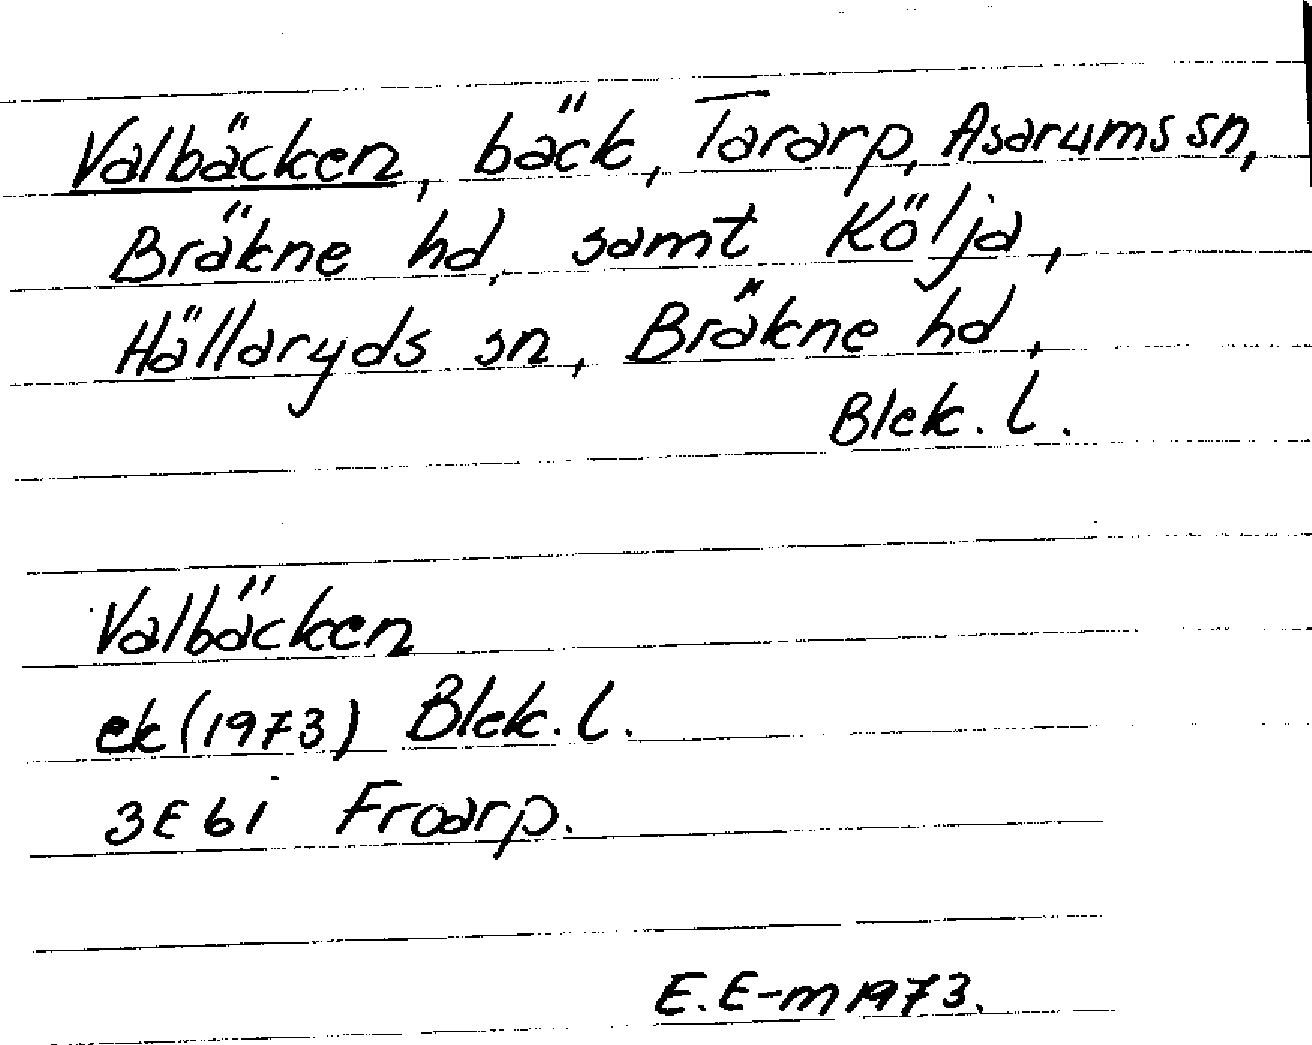 Valbäcken, bäck, Tararp, Asarums sn,
Bräkne hd, samt Kölja,
Hällaryds sn, Bräkne hd,
Blek. l.
Valbäcken
ek (1973) Blek. l.
3E6i Froarp.
E. E-m 1973.